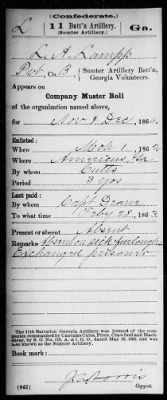 (Confederate.)
L 11 Batt'n Artillery. Ga.
(Sumter Artillery.)
L. A. Lampp
Pvt., Co. B, Sumter Artillery Batt'n,
Georgia Volunteers.
Appears on
Company Muster Roll
of the organization named above,
for Nov & Dec, 186
Enlisted:
When Mch 1, 186
Where Americus, Ga
By whom Cutts
Period 3 yrs
Last paid:
By whom Capt.
To what time Feby 28, 1863
Present or absent Absent
Remarks Absent on sick furlough
Exchanged prisoner
The 11th Battalion Georgia Artillery was formed of the companies commanded by Captains Cutts, Price, Crawford and
was also known as the Sumter Artillery.
Book mark:
(642) Copyist.